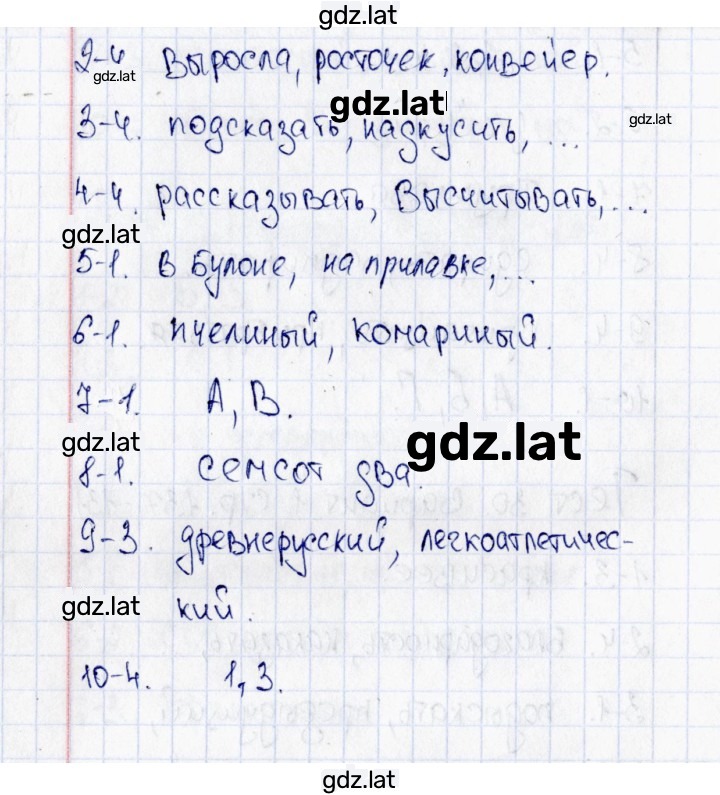 gdz.lat
2-4 Выросла, росточек, конвейер.
gdz.lat
gdz.lat
gdz.lat
3-4. подсказать, надкусить, ...
4-4. рассказывать, Высчитывать, ...
gdz.lat
5-1. в Булоне, на прилавке, ...
6-1. пчелиный, комариный.
7-1. А, В.
gdz.lat
gdz.lat
8-1. семсот два.
9-3. древнерусский, легкоатлетичес-
gdz.lat
кий.
10-4. 1, 3.
gdz.lat